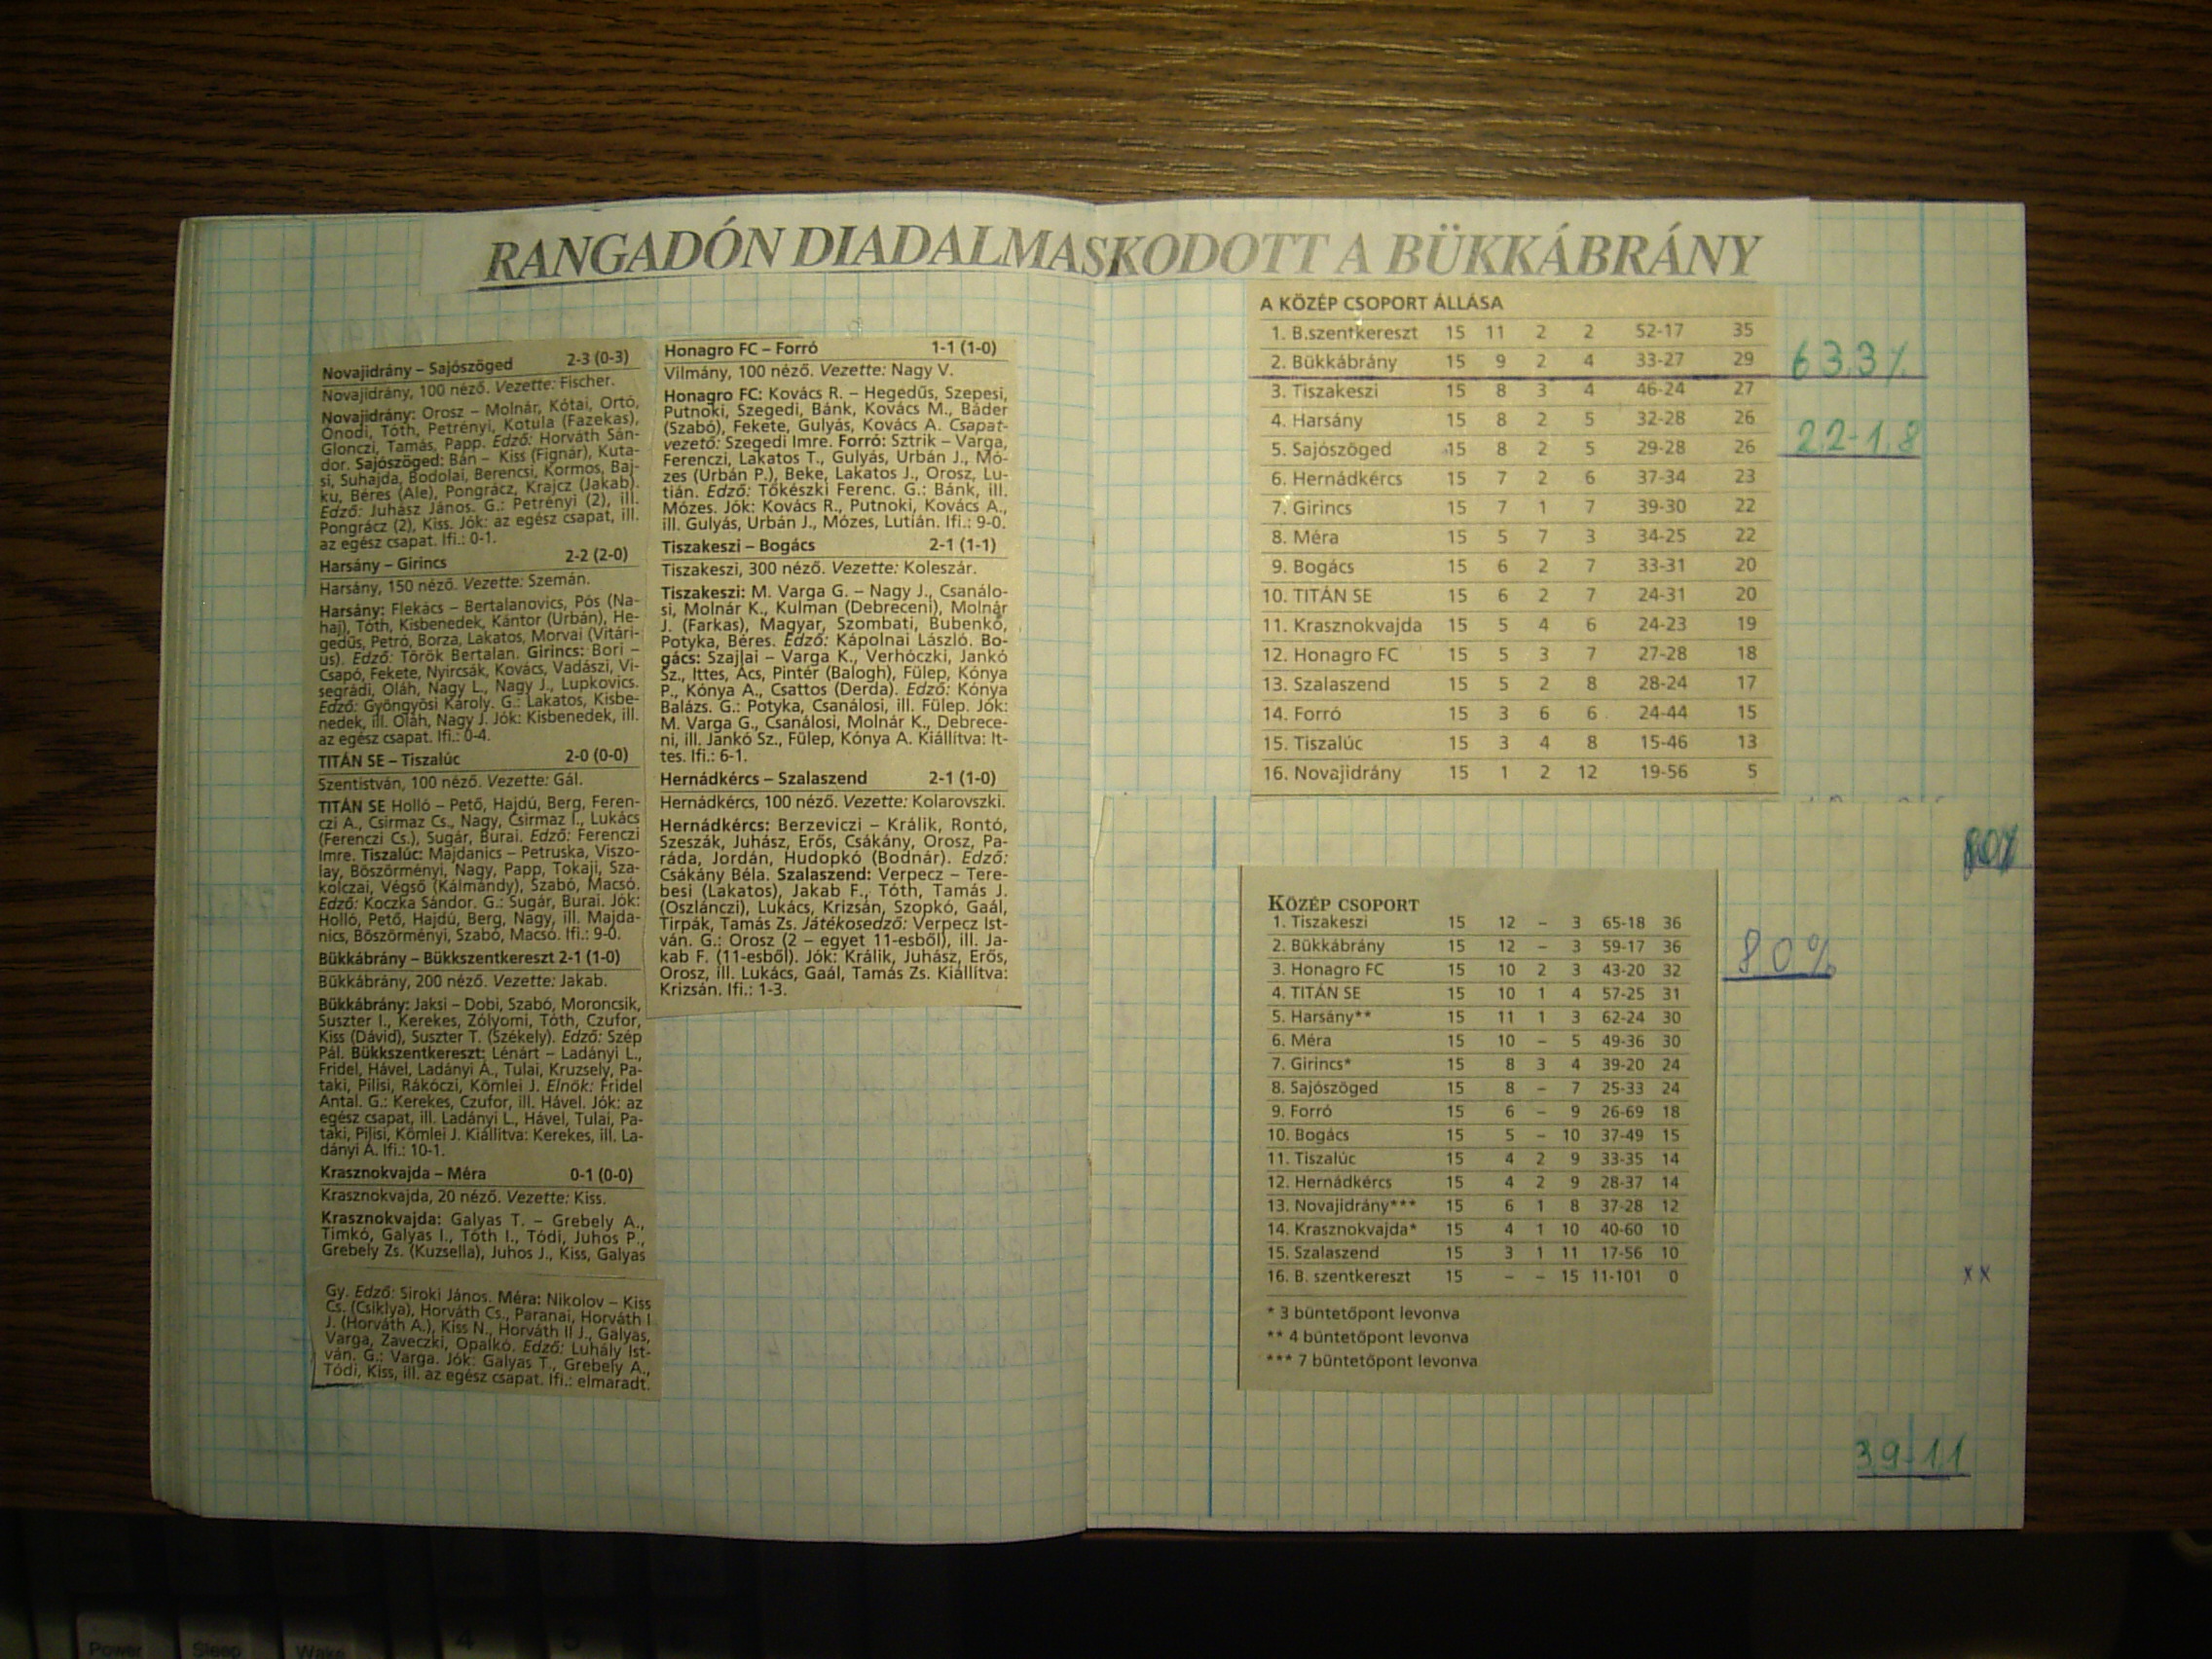 RANGADÓN DIADALMASKODOTT A BÜKKÁBRÁNY
Novajidrány – Sajószöged 2-3 (0-3)
Novajidrány, 100 néző. Vezette: Fischer.
Novajidrány: Orosz – Molnár, Kótai, Ortó,
Ónodi, Tóth, Petrényi, Kotula (Fazekas),
Glonczi, Tamás, Papp. Edző: Horváth Sán-
dor. Sajószöged: Bán – Kiss (Fignár), Kuta-
si, Suhajda, Bodolai, Berencsi, Kormos, Baj-
ku, Béres (Ale), Pongrácz, Krajcz (Jakab).
Edző: Juhász János. G.: Petrényi (2), ill.
Pongrácz (2), Kiss. Jók: az egész csapat, ill.
az egész csapat. Ifi.: 0-1.
Harsány – Girincs 2-2 (2-0)
Harsány, 150 néző. Vezette: Szemán.
Harsány: Flekács – Bertalanovics, Pós (Na-
haj), Tóth, Kisbenedek, Kántor (Urbán), He-
gedűs, Petró, Borza, Lakatos, Morvai (Vitári-
us). Edző: Török Bertalan. Girincs: Bori –
Csapó, Fekete, Nyircsák, Kovács, Vadászi, Vi-
segrádi, Oláh, Nagy L., Nagy J., Lupkovics.
Edző: Gyöngyösi Károly. G.: Lakatos, Kisbe-
nedek, ill. Oláh, Nagy J. Jók: Kisbenedek, ill.
az egész csapat. Ifi.: 0-4.
TITÁN SE – Tiszalúc 2-0 (0-0)
Szentistván, 100 néző. Vezette: Gál.
TITÁN SE Holló – Pető, Hajdú, Berg, Feren-
czi A., Csirmaz Cs., Nagy, Csirmaz I., Lukács
(Ferenczi Cs.), Sugár, Burai. Edző: Ferenczi
Imre. Tiszalúc: Majdanics – Petruska, Viszo-
lay, Böszörményi, Nagy, Papp, Tokaji, Sza-
kolczai, Végső (Kálmándy), Szabó, Macsó.
Edző: Koczka Sándor. G.: Sugár, Burai. Jók:
Holló, Pető, Hajdú, Berg, Nagy, ill. Majda-
nics, Böszörményi, Szabó, Macsó. Ifi.: 9-0.
Bükkábrány – Bükkszentkereszt 2-1 (1-0)
Bükkábrány, 200 néző. Vezette: Jakab.
Bükkábrány: Jaksi – Dobi, Szabó, Moroncsik,
Suszter I., Kerekes, Zólyomi, Tóth, Czufor,
Kiss (Dávid), Suszter T. (Székely). Edző: Szép
Pál. Bükkszentkereszt: Lénárt – Ladányi L.,
Fridel, Hável, Ladányi A., Tulai, Kruzsely, Pa-
taki, Pilisi, Rákóczi, Kömlei J. Elnök: Fridel
Antal. G.: Kerekes, Czufor, ill. Hável. Jók: az
egész csapat, ill. Ladányi L., Hável, Tulai, Pa-
taki, Pilisi, Kömlei J. Kiállítva: Kerekes, ill. La-
dányi A. Ifi.: 10-1.
Krasznokvajda – Méra 0-1 (0-0)
Krasznokvajda, 20 néző. Vezette: Kiss.
Krasznokvajda: Galyas T. – Grebely A.,
Timkó, Galyas I., Tóth I., Tódi, Juhos P.,
Grebely Zs. (Kuzsella), Juhos J., Kiss, Galyas
Gy. Edző: Siroki János. Méra: Nikolov – Kiss
Cs. (Csiklya), Horváth Cs., Paranai, Horváth I
J. (Horváth A.), Kiss N., Horváth II J., Galyas,
Varga, Zaveczki, Opalkó. Edző: Luhály Ist-
ván. G.: Varga. Jók: Galyas T., Grebely A.,
Tódi, Kiss, ill. az egész csapat. Ifi.: elmaradt.
Honagro FC – Forró 1-1 (1-0)
Vilmány, 100 néző. Vezette: Nagy V.
Honagro FC: Kovács R. – Hegedűs, Szepesi,
Putnoki, Szegedi, Bánk, Kovács M., Báder
(Szabó), Fekete, Gulyás, Kovács A. Csapat-
vezető: Szegedi Imre. Forró: Sztrik – Varga,
Ferenczi, Lakatos T., Gulyás, Urbán J., Mó-
zes (Urbán P.), Beke, Lakatos J., Orosz, Lu-
tián. Edző: Tőkészki Ferenc. G.: Bánk, ill.
Mózes. Jók: Kovács R., Putnoki, Kovács A.,
ill. Gulyás, Urbán J., Mózes, Lutián. Ifi.: 9-0.
Tiszakeszi – Bogács 2-1 (1-1)
Tiszakeszi, 300 néző. Vezette: Koleszár.
Tiszakeszi: M. Varga G. – Nagy J., Csanálo-
si, Molnár K., Kulman (Debreceni), Molnár
J. (Farkas), Magyar, Szombati, Bubenkó,
Potyka, Béres. Edző: Kápolnai László. Bo-
gács: Szajlai – Varga K., Verhóczki, Jankó
Sz., Ittes, Ács, Pintér (Balogh), Fülep, Kónya
P., Kónya A., Csattos (Derda). Edző: Kónya
Balázs. G.: Potyka, Csanálosi, ill. Fülep. Jók:
M. Varga G., Csanálosi, Molnár K., Debrece-
ni, ill. Jankó Sz., Fülep, Kónya A. Kiállítva: It-
tes. Ifi.: 6-1.
Hernádkércs – Szalaszend 2-1 (1-0)
Hernádkércs, 100 néző. Vezette: Kolarovszki.
Hernádkércs: Berzeviczi – Králik, Rontó,
Szeszák, Juhász, Erős, Csákány, Orosz, Pa-
ráda, Jordán, Hudopkó (Bodnár). Edző:
Csákány Béla. Szalaszend: Verpecz – Tere-
besi (Lakatos), Jakab F., Tóth, Tamás J.
(Oszlánczi), Lukács, Krizsán, Szopkó, Gaál,
Tirpák, Tamás Zs. Játékosedző: Verpecz Ist-
ván. G.: Orosz (2 – egyet 11-esből), ill. Ja-
kab F. (11-esből). Jók: Králik, Juhász, Erős,
Orosz, ill. Lukács, Gaál, Tamás Zs. Kiállítva:
Krizsán. Ifi.: 1-3.
A KÖZÉP CSOPORT ÁLLÁSA
1. B.szentkereszt 15 11 2 2 52-17 35
2. Bükkábrány 15 9 2 4 33-27 29 63,3%
3. Tiszakeszi 15 8 3 4 46-24 27
4. Harsány 15 8 2 5 32-28 26 2,2-1,8
5. Sajószöged 15 8 2 5 29-28 26
6. Hernádkércs 15 7 2 6 37-34 23
7. Girincs 15 7 1 7 39-30 22
8. Méra 15 5 7 3 34-25 22
9. Bogács 15 6 2 7 33-31 20
10. TITÁN SE 15 6 2 7 24-31 20
11. Krasznokvajda 15 5 4 6 24-23 19
12. Honagro FC 15 5 3 7 27-28 18
13. Szalaszend 15 5 2 8 28-24 17
14. Forró 15 3 6 6 24-44 15
15. Tiszalúc 15 3 4 8 15-46 13
16. Novajidrány 15 1 2 12 19-56 5
80%
KÖZÉP CSOPORT
1. Tiszakeszi 15 12 – 3 65-18 36
2. Bükkábrány 15 12 – 3 59-17 36 80%
3. Honagro FC 15 10 2 3 43-20 32
4. TITÁN SE 15 10 1 4 57-25 31
5. Harsány** 15 11 1 3 62-24 30
6. Méra 15 10 – 5 49-36 30
7. Girincs* 15 8 3 4 39-20 24
8. Sajószöged 15 8 – 7 25-33 24
9. Forró 15 6 – 9 26-69 18
10. Bogács 15 5 – 10 37-49 15
11. Tiszalúc 15 4 2 9 33-35 14
12. Hernádkércs 15 4 2 9 28-37 14
13. Novajidrány*** 15 6 1 8 37-28 12
14. Krasznokvajda* 15 4 1 10 40-60 10
15. Szalaszend 15 3 1 11 17-56 10
16. B. szentkereszt 15 – – 15 11-101 0
xx
* 3 büntetőpont levonva
** 4 büntetőpont levonva
*** 7 büntetőpont levonva
3,9-1,1
Power
Sleep
Wake
4
5